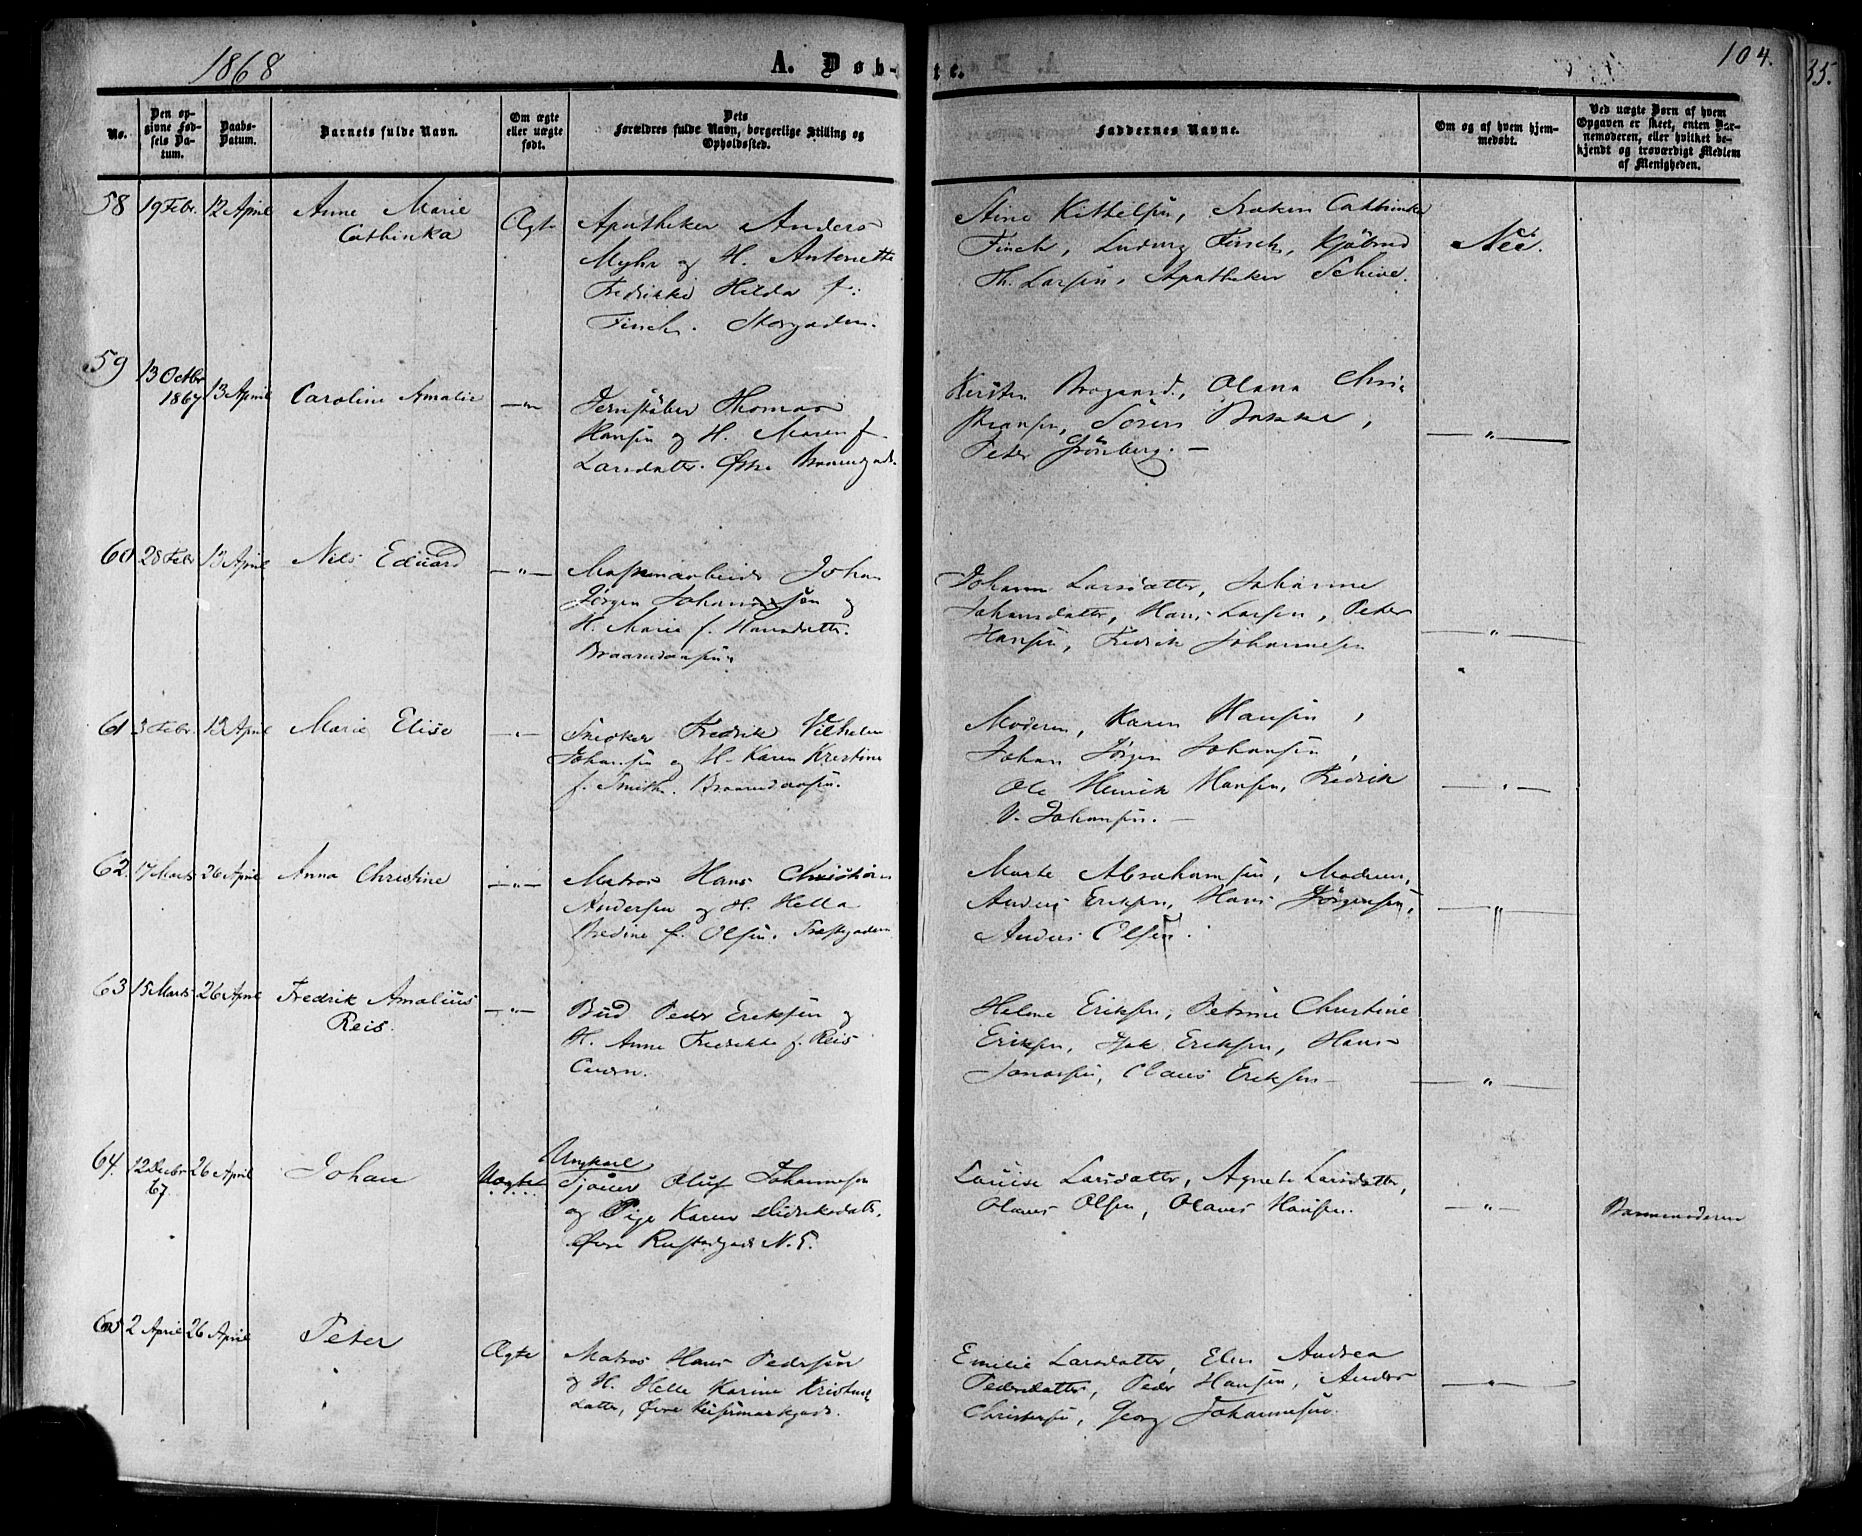 1868
A. Døb-
te.
104.
35.
No.
Den op-
givne Fød-
sels Da-
tum.
Daabs-
Datum.
Barnets fulde Navn.
Om ægte
eller uægte
født.
Dets
Forældres fulde Navn, borgerlige Stilling og
Opholdssted.
Faddernes Navne.
Om og af hvem hjem-
medøbt.
Ved uægte Børn af hvem
Opgaven er skeet, enten Bar-
nemoderen, eller hvilket be-
kjendt og troværdigt Medlem
af Menigheden.
58 19 Febr. 12 April Anne Marie
Cathinka
Ægte
Apotheker Anders
Myhr og H. Antonette
Fredrikke Hilda f.
Finch. Storgaden.
Stine Kittelsen, Cathrinka
Finch, Ludvig Finch,
Th. Larsen, Apotheker Schive.
Nei.
59 13 Octbr
1867 13 April Caroline Amalie — " —
Jernstøber Thomas
Hansen og H. Maren f.
Larsdatter.
Kirsten Olava Chri-
stiansen, Søren Bakke,
Peter Grönberg. —
— " —
60 28 Febr 13 April Nils Eduard — " —
Johan
Jørgen Johansen og
H. Marie f. Hansdatter.
Braarudaasen.
Johanne Larsdatter, Johanne
Johansdatter, Hans Larsen, Peter
Hansen, Fredrik Johannesen
— " —
61 3 Febr. 13 April Marie Elise — " —
Snedker Fredrik Vilhelm
Johansen og H. Karen Kristine
f. Smith. Braarudaasen.
Moderen, Karen Hansen,
Johan Jørgen Johansen,
Ole Henrik Hansen, Fredrik
V. Johansen. —
— " —
62. 17 Marts 26 April Anna Christine — " —
Matros Hans Christian
Andersen og H. Hella
Bredine f. Olsen.
Marte Abrahamsen, Moderen,
Anders Eriksen, Hans Jörgensen,
Anders Olsen.
— " —
63 15 Marts 26 April Fredrik Amalius
Reis.
— " —
Bud Peder Eriksen og
H. Anne Fredrikke f. Reis
Helene Eriksen, Petrine Christine
Eriksen, Isak Eriksen, Hans
Jonassen, Claus Eriksen —
— " —
64. 12 Decbr
67. 26 April Johan Uægte
Ungkarl
Sjouer Oluf Johannesen
og Pige Karen Didriksdatter,
Louise Larsdatter, Agnete Larsdatter,
Olaves Olsen, Olaves Hansen.
— " —
Barnemoderen
65 2 April 26 April Peter Ægte
Matros Hans Pedersen
og H. Helle Karine Kristens-
datter, Øvre
Emilie Larsdatter, Elen Andrea
Pedersdatter, Peder Hansen, Anders
Christensen, Georg Johannesen.
— " —